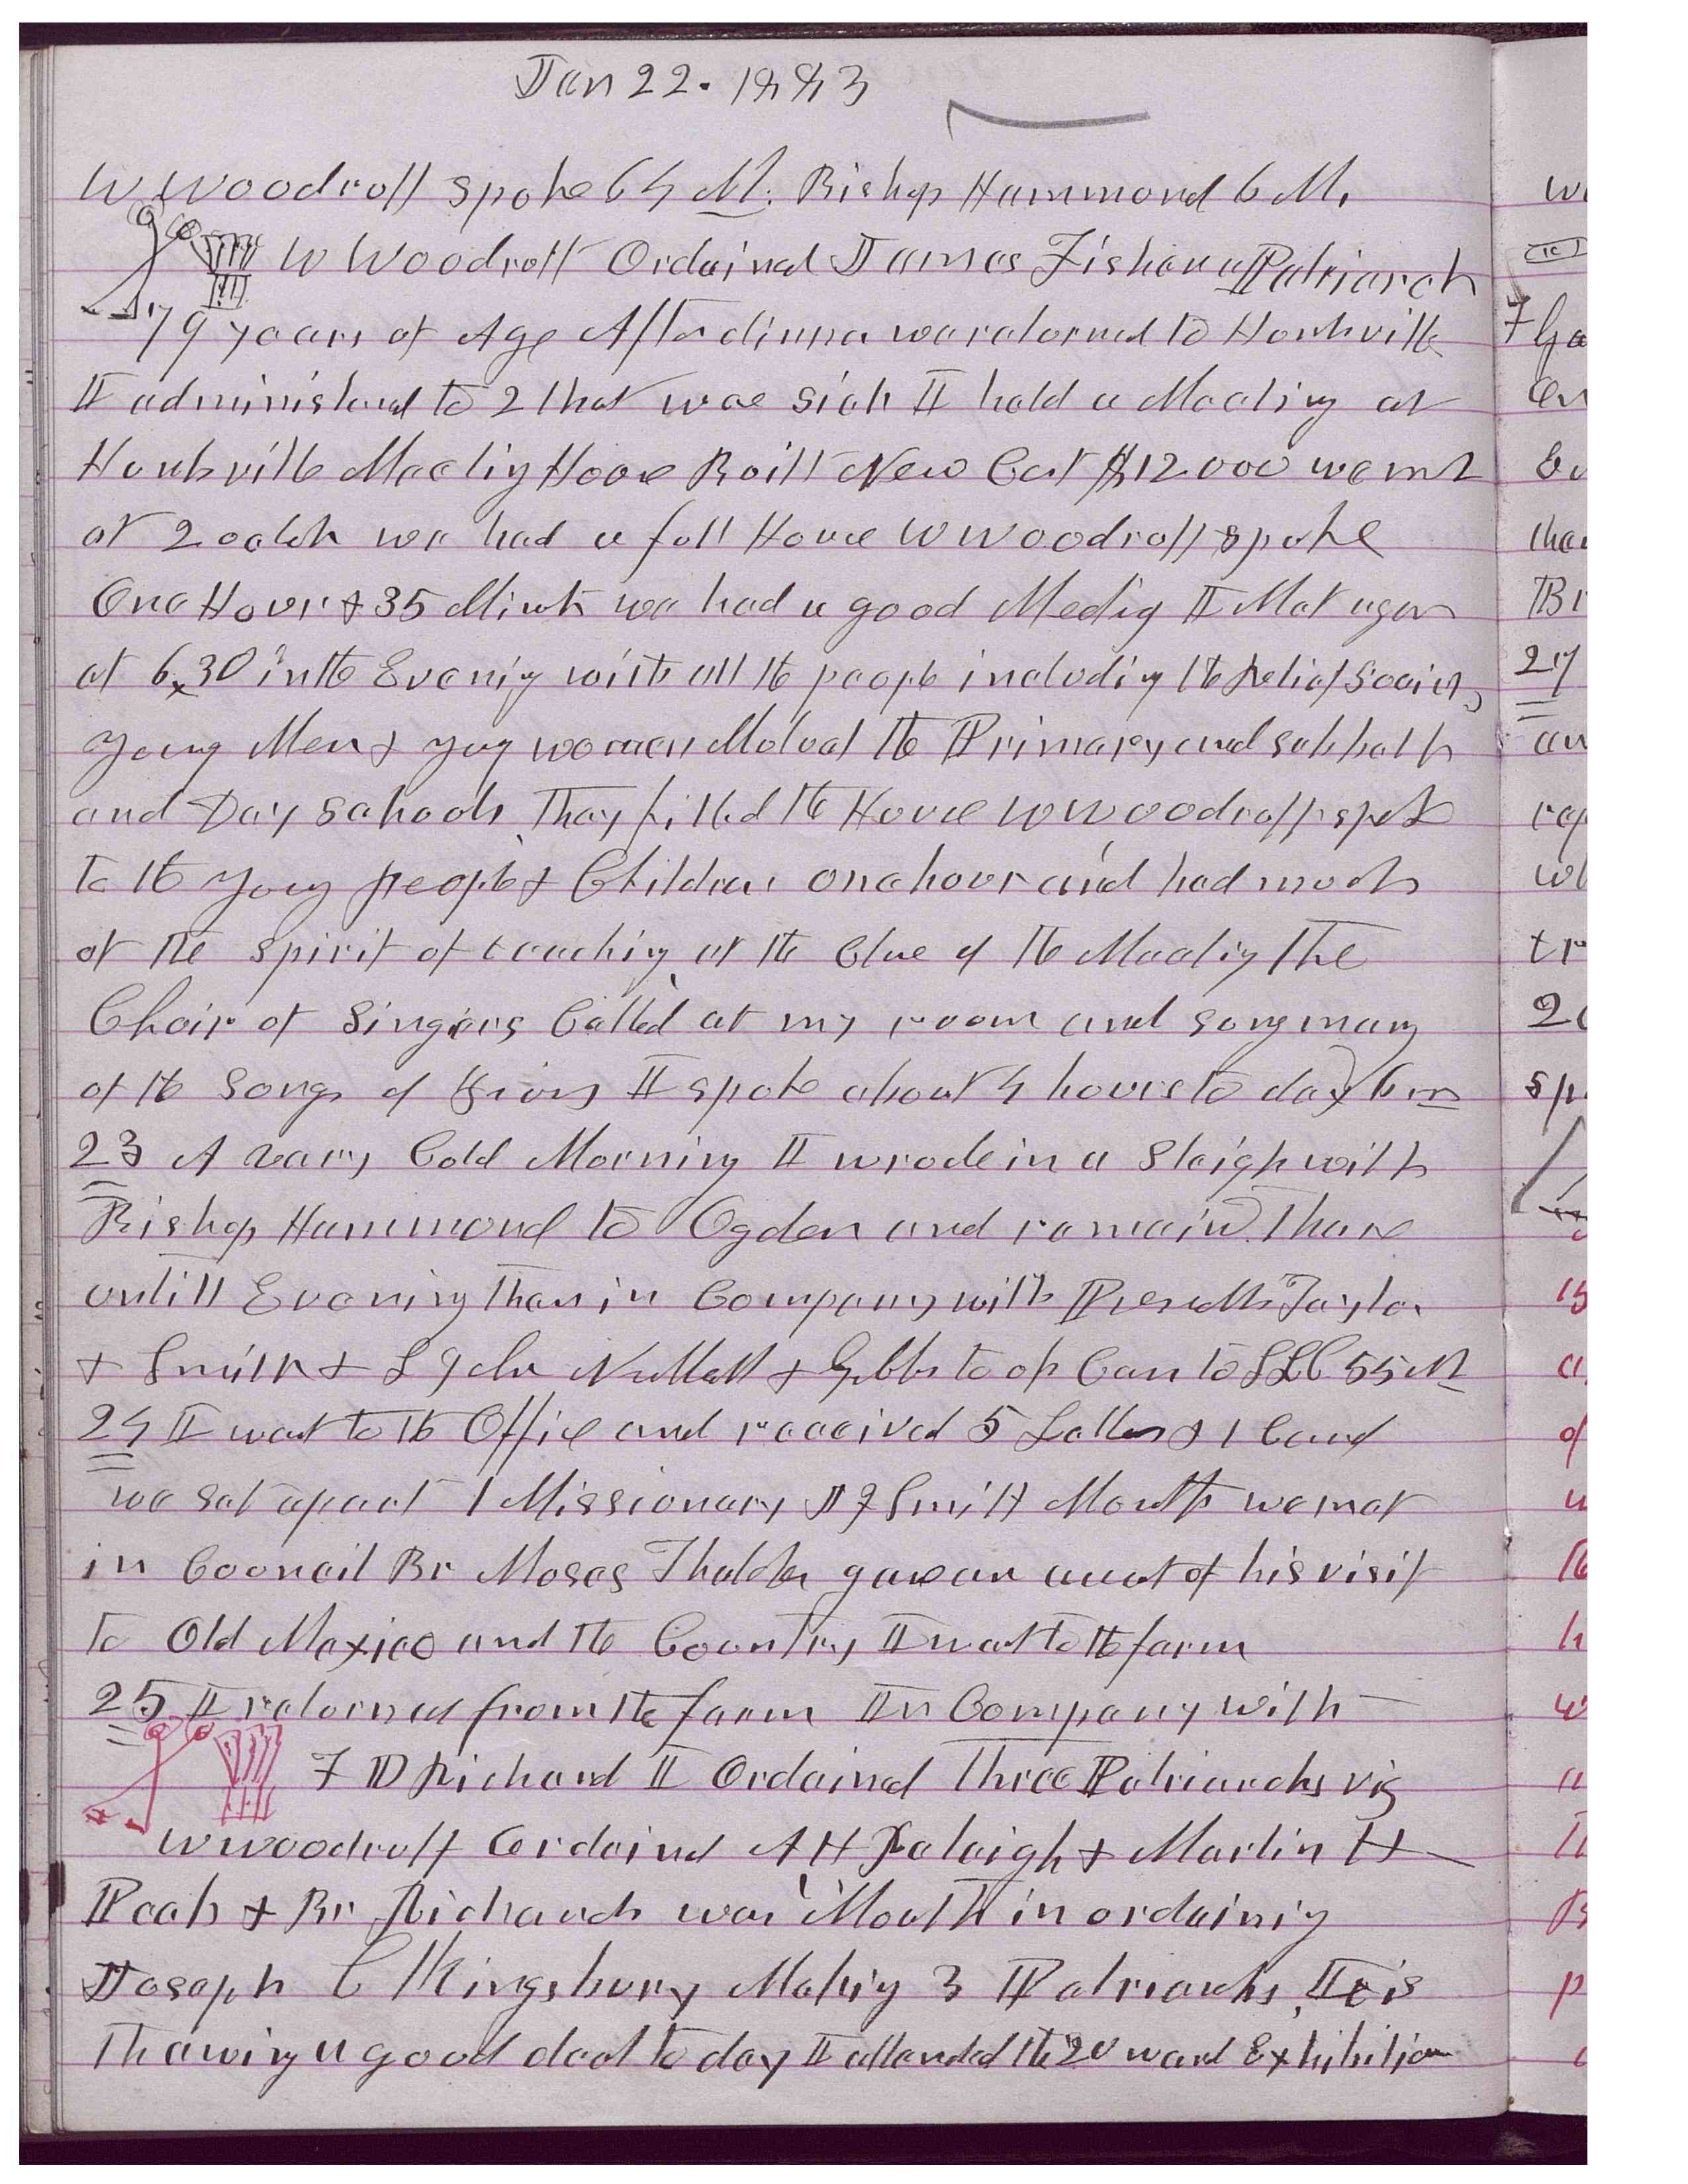 Jan 22. 1883
W Woodruff spoke 64 M. Bishop Hammond 6 M.
W Woodruff Ordained James Fisher a Patriarch
79 years of Age After dinner we returned to Huntsville
I administered to 2 that was sick I held a Meeting at
Huntsville Meeting House Built New Cost $12000 we met
at 2 oclok we had a full House W Woodruff spoke
One Hour & 35 Minuts we had a good Meeting I Met again
at 6,30 in the Evening with all the people including the Relief Society,
Young Men & yung women Mutual the Primary and Sabbath
and Day Schools They filled the House W Woodruff spoke
to the Young people & Children one hour and had much
of the spirit of teaching at the Close of the Meeting The
Choir of Singers Called at my room and sung many
of the Songs of Zion I spoke about 4 hours to day 6 m
23 A vary Cold Morning I wrode in a Sleigh with
Bishop Hammond to Ogden and remain There
untill Evening Then in Company with Presidts Taylor
& Smith & L John Nuttall & Gibbs took Cars to SLC 55 M
24 I went to the Office and received 5 Letters & 1 Card
we set apart 1 Missionary J F Smith Mouth we met
in Council Br Moses Thatcher gave an account of his visit
to Old Mexico and the Country I went to the farm
25 I returned from the farm In Company with
F D Richard I Ordained Three Patriarchs viz
W Woodruff Ordained A H Raleigh & Martin H
Peck & Br Richards was Mouth in ordaining
Joseph C Kingsbury Making 3 Patriarchs, It is
Thawing a good deal to day I attended the 20 ward Exhibition